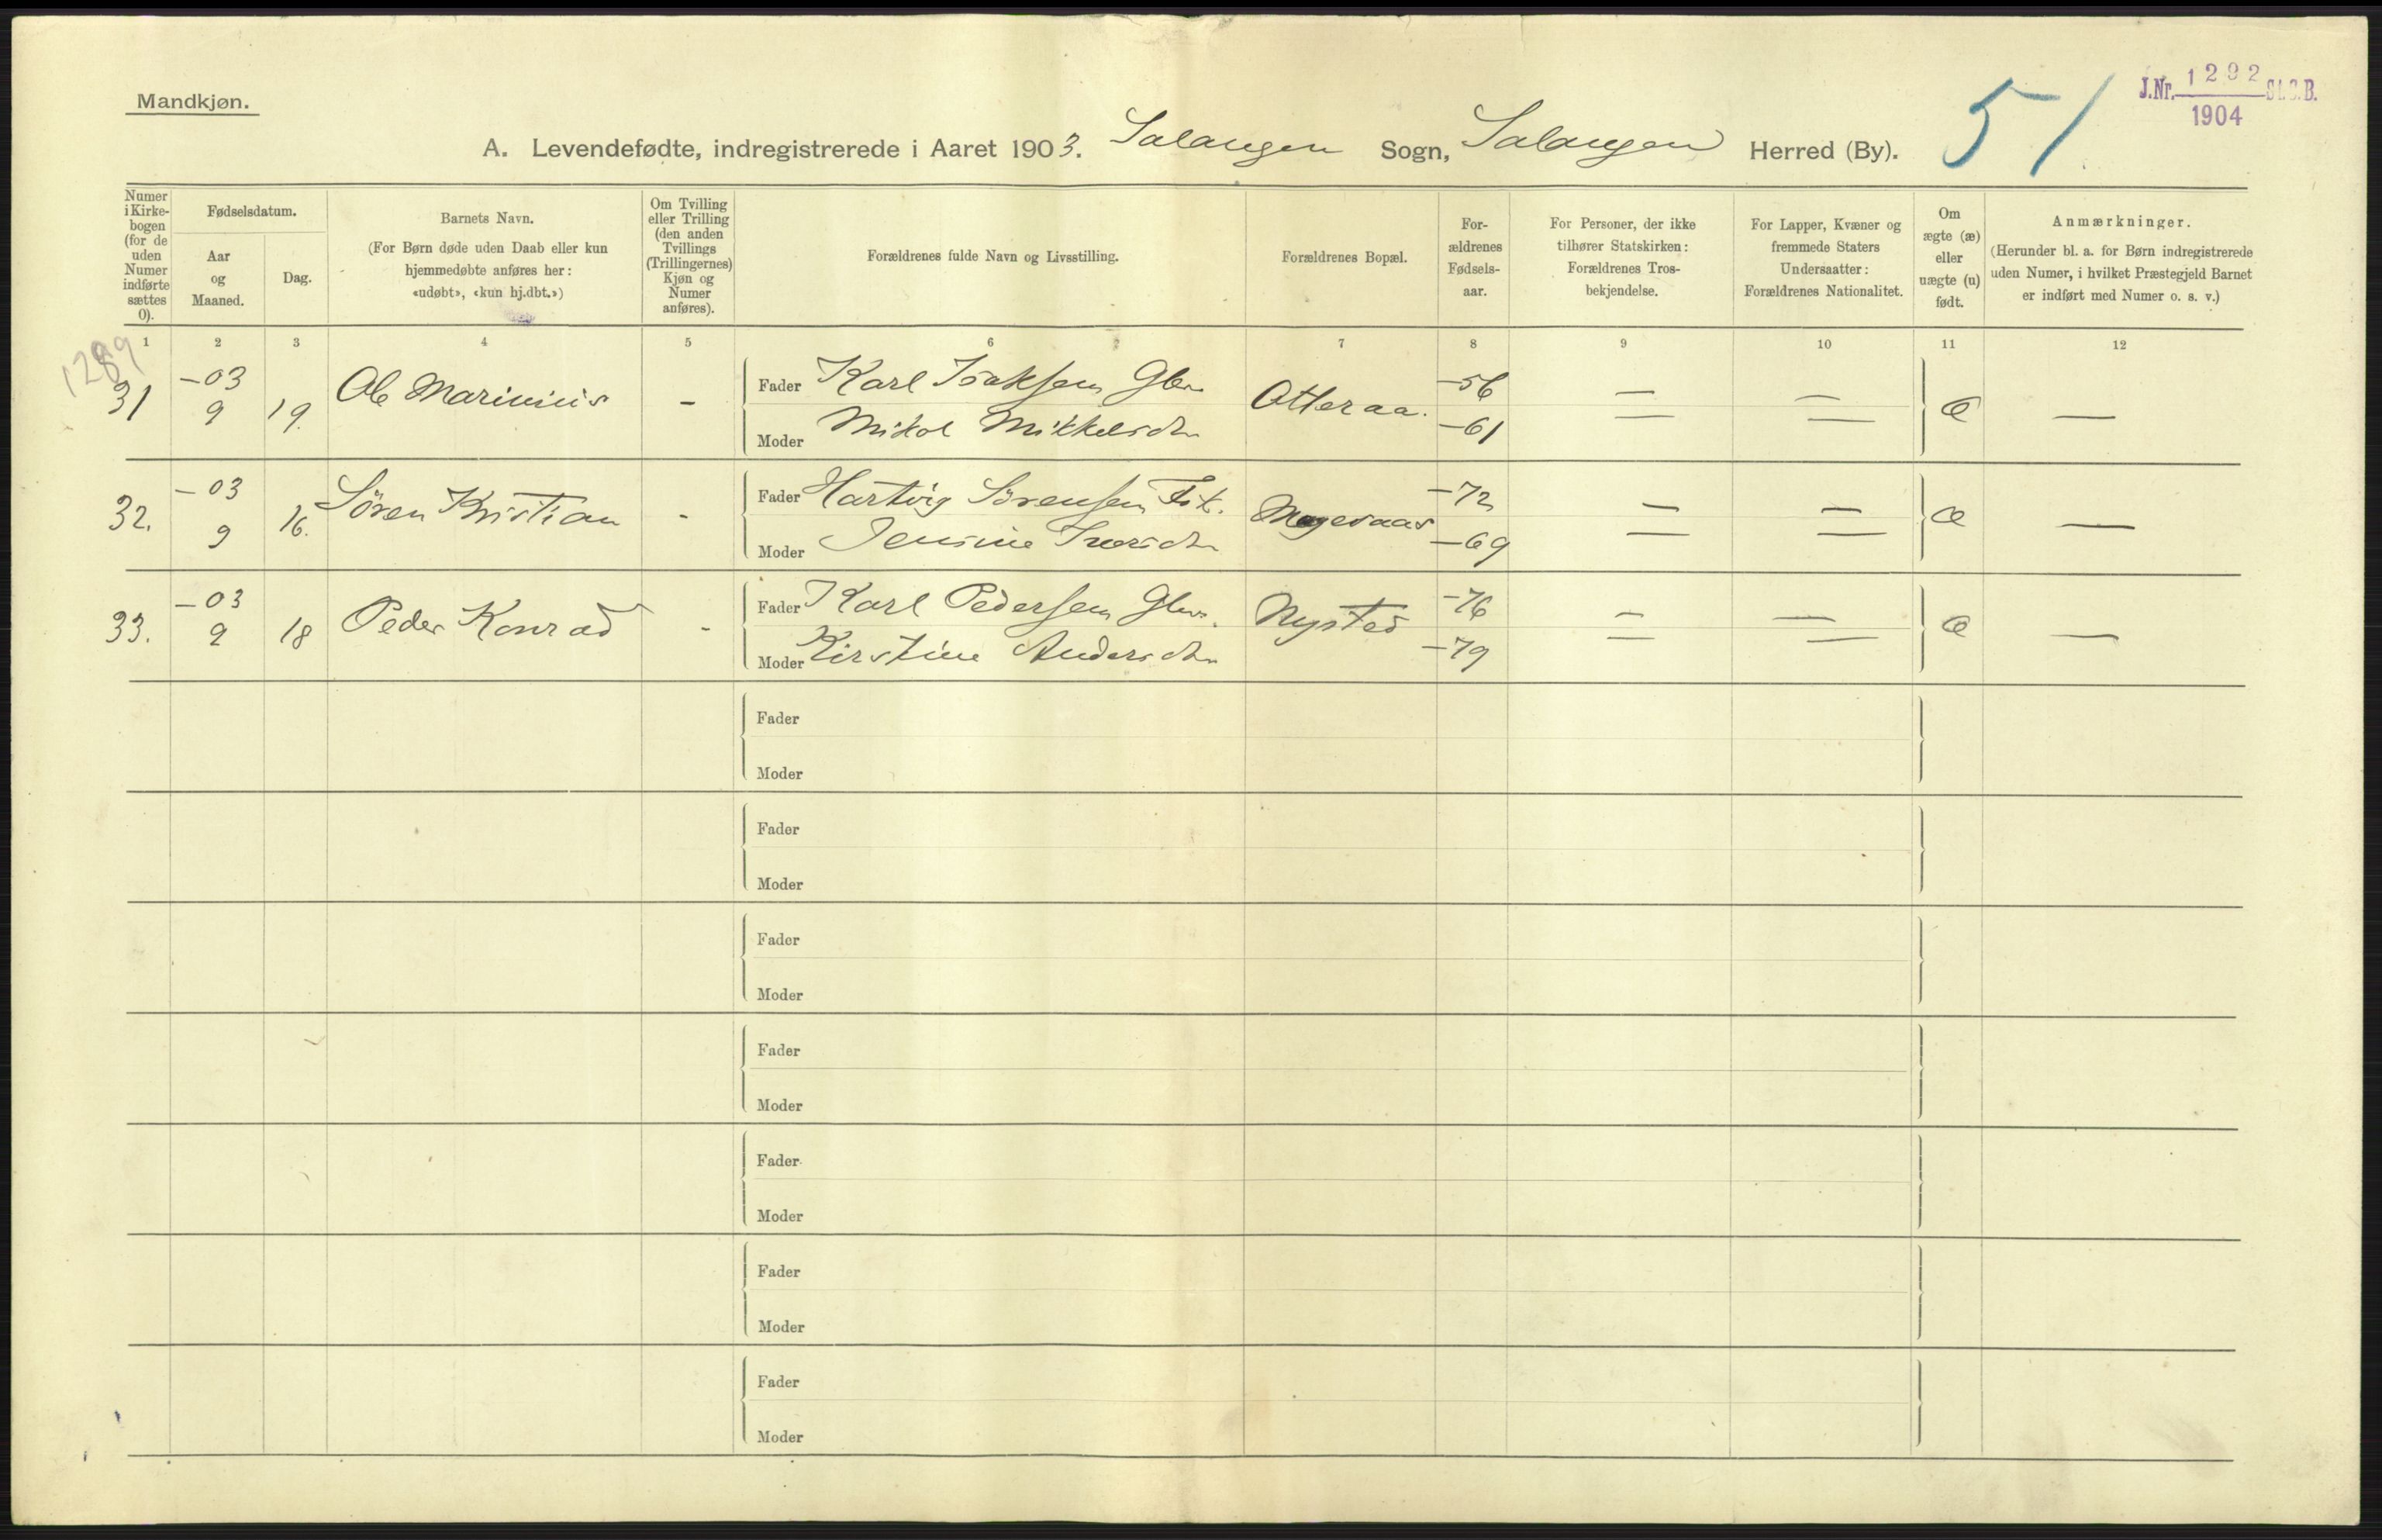 J.Nr. 1292 St.C.B.
1904
51
Mandkjøn.
A. Levendefødte, indregistrerede i Aaret 1903. Salangen Sogn, Salangen Herred (By).
Numer i Kirkebogen (for de uden Numer indførte sættes 0).
Fødselsdatum.
Aar og Maaned.
Dag.
Barnets Navn.
(For Børn døde uden Daab eller kun hjemmedøbte anføres her: «udøbt», «kun hj.dbt.»)
Om Tvilling eller Trilling (den anden Tvillings (Trillingernes) Kjøn og Numer anføres).
Forældrenes fulde Navn og Livsstilling.
Forældrenes Bopæl.
Forældrenes Fødselsaar.
For Personer, der ikke tilhører Statskirken: Forældrenes Trosbekjendelse.
For Lapper, Kvæner og fremmede Staters Undersaatter: Forældrenes Nationalitet.
Om ægte (æ) eller uægte (u) født.
Anmærkninger.
(Herunder bl. a. for Børn indregistrerede uden Numer, i hvilket Præstegjeld Barnet er indført med Numer o. s. v.)
1 2 3 4 5 6 7 8 9 10 11 12
1289
31 –03 9 19. Ole Marinius – Fader Karl Isaksen Gbr. Otteraa. –56 — — æ —
Moder Mikol Mikkelsdtr –61 — —
32. –03 9 16. Sören Kristian - Fader Hartvig Sörensen Fisk. –72 — — æ —
Moder Jensine Iversdtr –69 — —
33. –03 9 18 Peder Konrad - Fader Karl Pedersen Gbr. Nysted –76 — — æ —
Moder Kirstine Andersdtr –79 — —
Fader
Moder
Fader
Moder
Fader
Moder
Fader
Moder
Fader
Moder
Fader
Moder
Fader
Moder